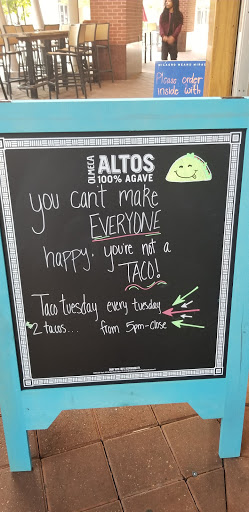 Please order
inside with
OLMECA
ALTOS
100% AGAVE
you can't make
EVERYONE
happy. you're not a
TACO!
Taco tuesday every tuesday
2 tacos... from 5pm-close